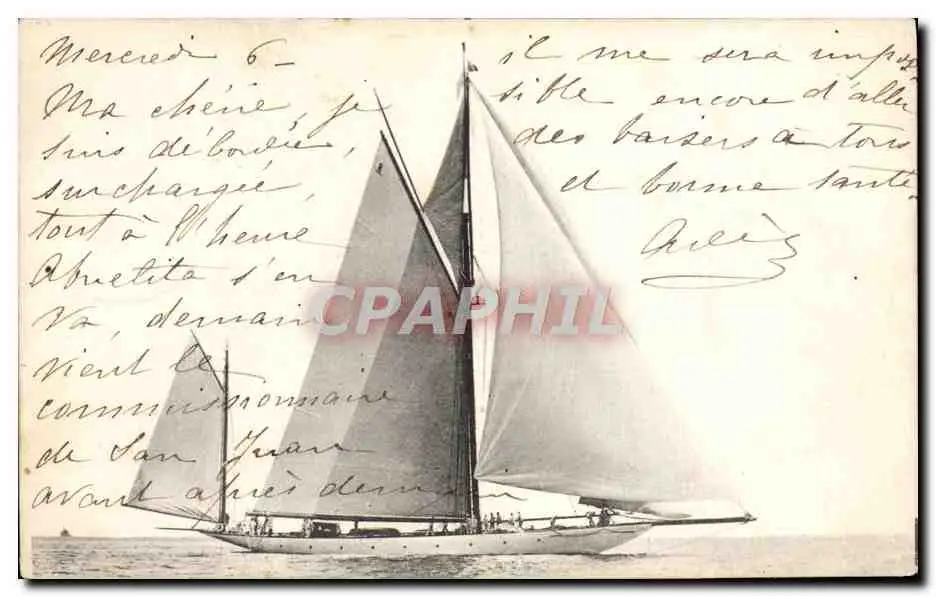 Mercredi 6 -
Ma chérie, je
suis débordée,
surchargée,
tout à l'heure
Abuelita s'en
va, demain
vient le
commissionnaire
de San Juan
avant après demain
il me sera impos
sible encore d'aller
des baisers à tous
et bonne santé
CPAPHIL